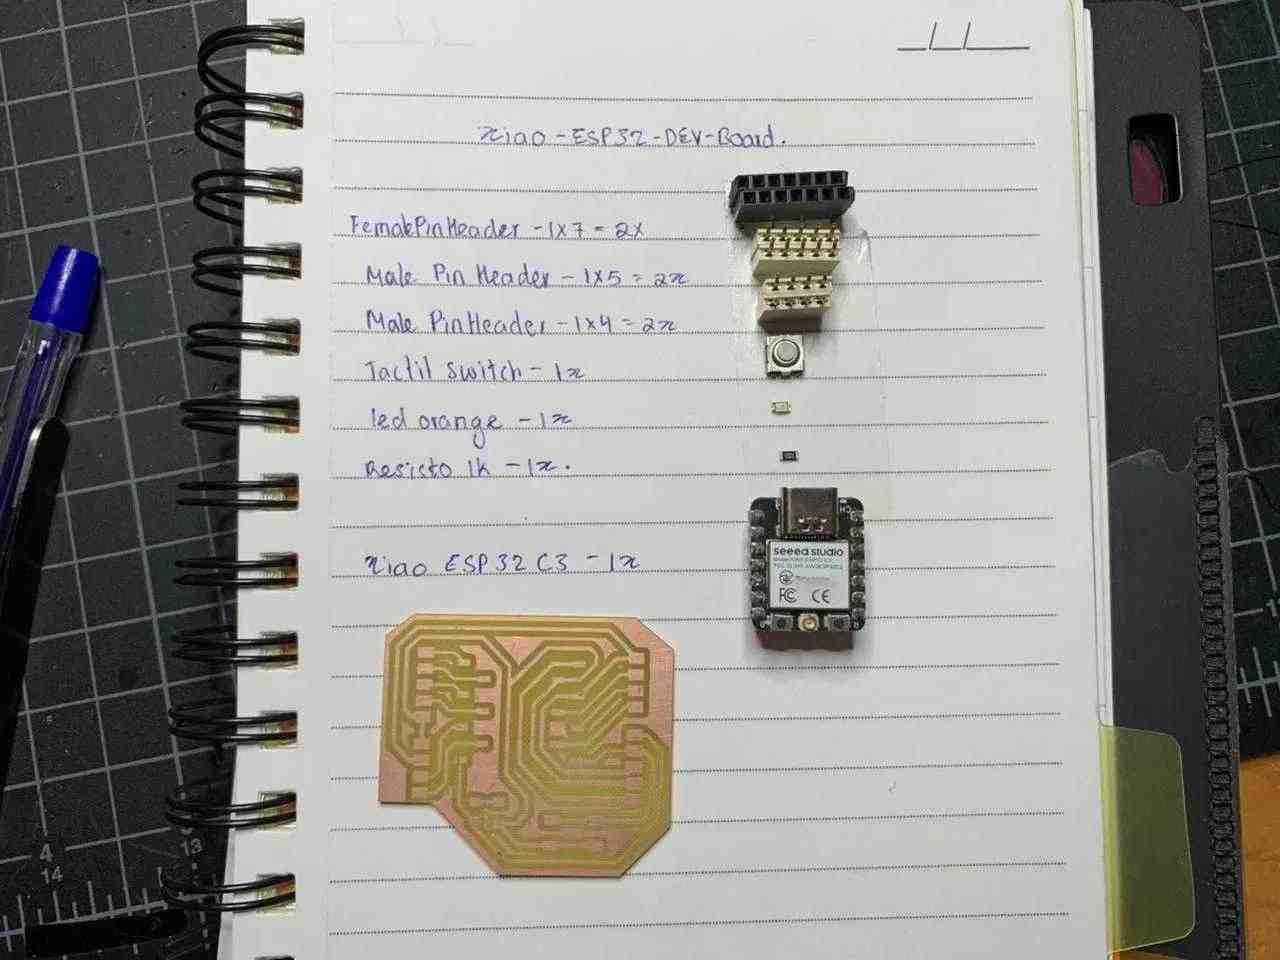 __/__/____
xiao-ESP32-DEV-Board.
FemalePinHeader - 1x7 = 2x
Male Pin Header - 1x5 = 2x
Male PinHeader - 1x4 = 2x
Tactil switch - 1x
led orange - 1x
Resisto 1k - 1x.
xiao ESP32 C3 - 1x
seeed studio
FC CE
4
14
13